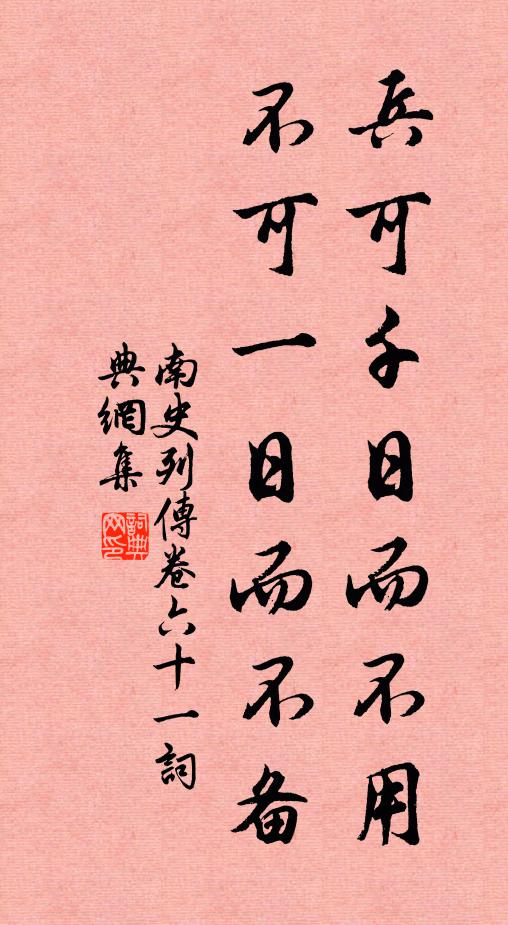 兵可千日而不用
不可一日而不备
南史列傳卷六十一詞
典網集
詞典
网印